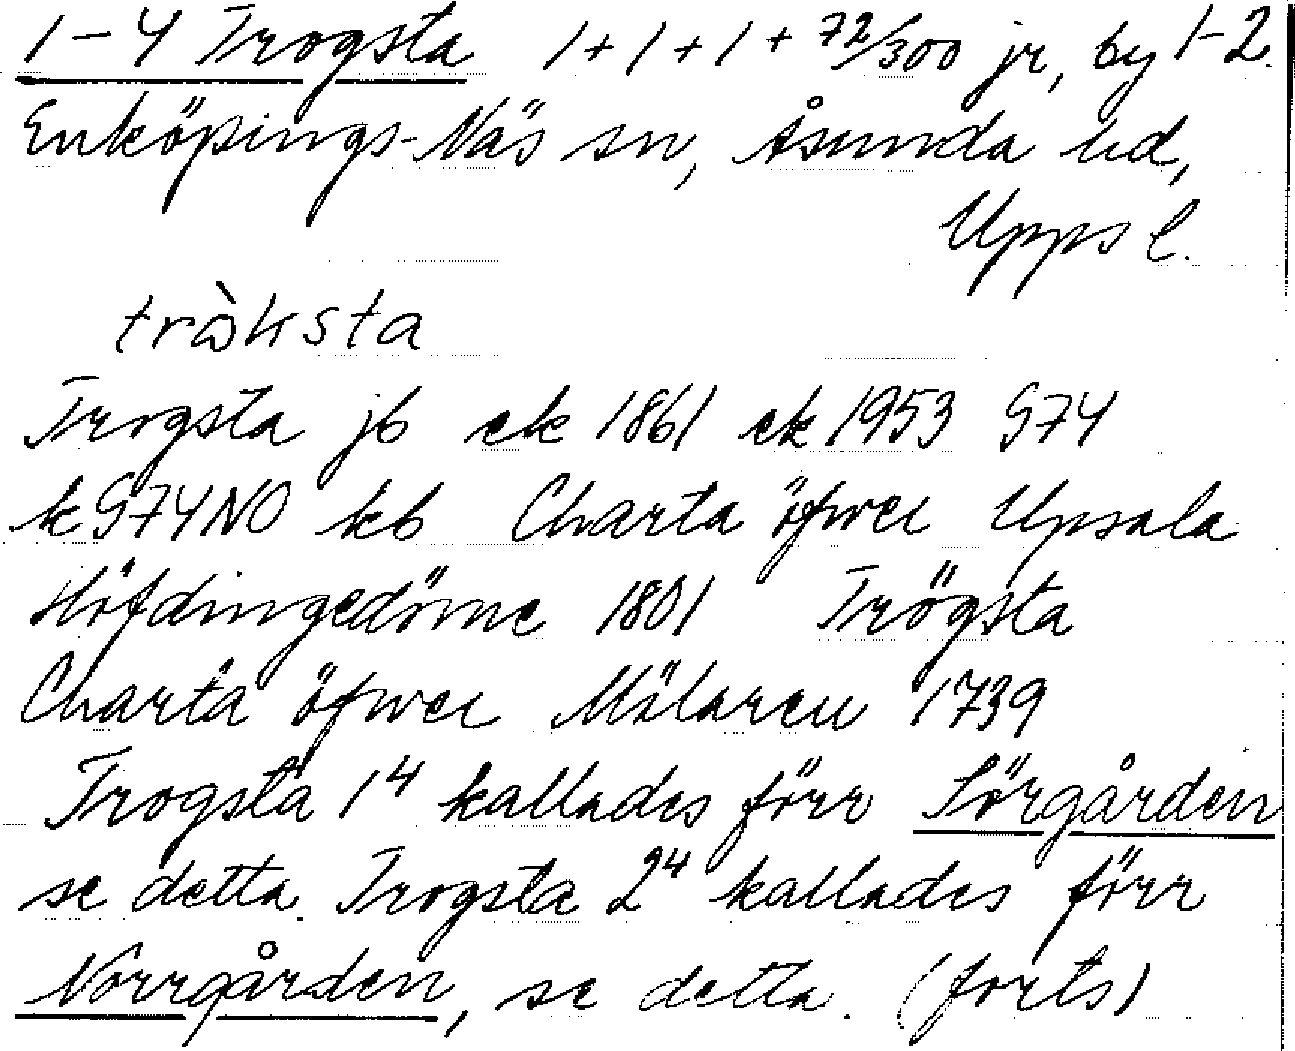 1-4 Trogsta 1+1+1+72/300 jr, by 1-2.
Enköpings-Näs sn, Åsunda hd,
Upps l.
trὼksta
Trogsta jb ek 1861 ek 1953 G74
kG74NO kb Charta öfwer Upsala
Höfdingedöme 1801 Trögsta
Charta öfwer Mälaren 1739
Trogsta 1⁴ kallades förr Sörgården
se detta. Trogsta 2⁴ kallades förr
Norrgården, se detta. (forts)